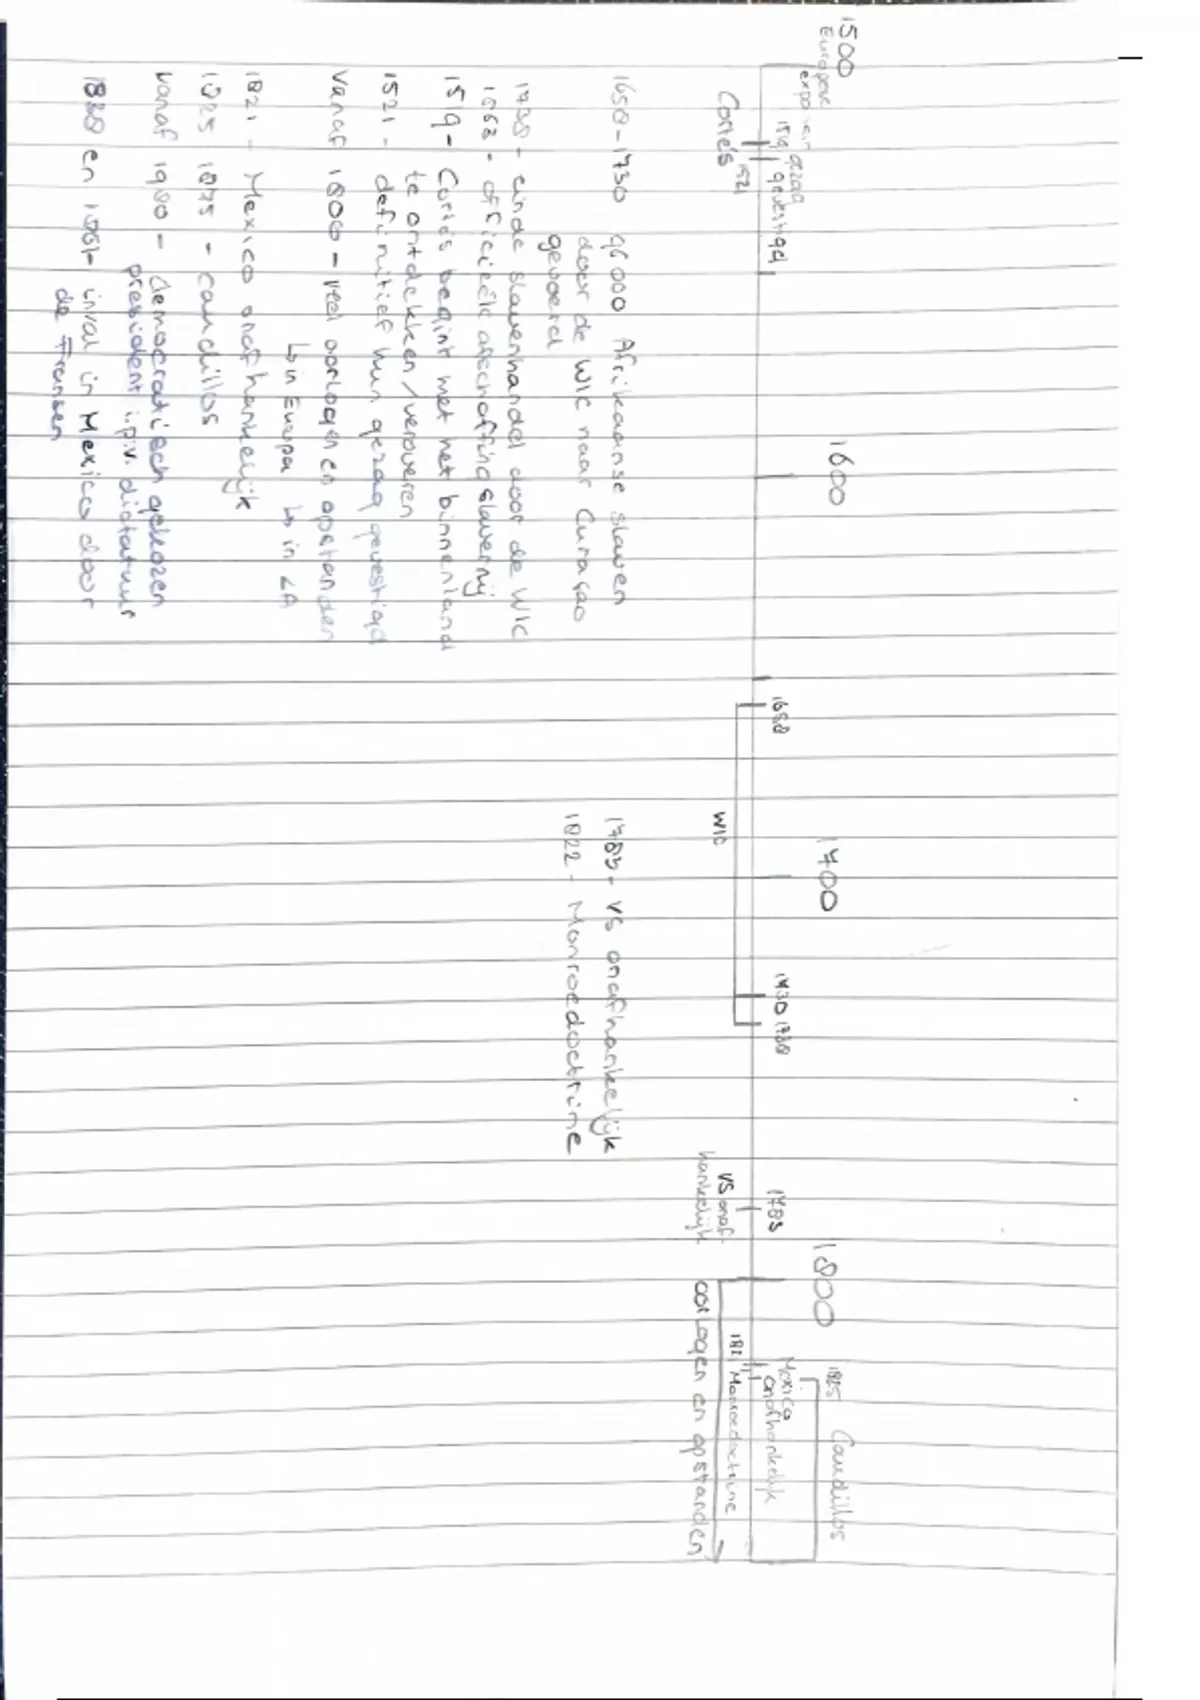 1500
Europese
expansie
1519
gezag
gevestigd
Cortés
1521
1600
1658
WIC
1700
1730 1738
1783
VS onaf-
hankelijk
1800
1821
Mexico
onafhankelijk
Monroedoctrine
1825
Caudillos
oorlogen en opstanden
1658-1730 96000 Afrikaanse slaven
door de WIC naar Curaçao
gevoerd
1738 - einde slavenhandel door de WIC
1863 - officieële afschaffing slavernij
1519 - Cortés begint met het binnenland
te ontdekken / veroveren
1521 - definitief hun gezag gevestigd
vanaf 1800 - veel oorlogen en opstanden
↳ in Europa ↳ in LA
1821 - Mexico onafhankelijk
1825 1875 - caudillos
vanaf 1980 - democratisch gekozen
president i.p.v. dictatuur
1838 en 1861 - inval in Mexico door
de Fransen
1783 - VS onafhankelijk
1822 - Monroedoctrine